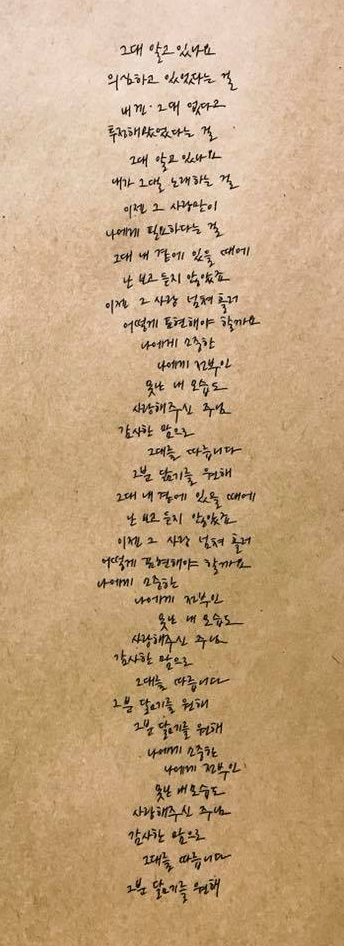 그대 알고 있나요
의심하고 있었다는 걸
내겐 그대 없다고
투정해왔었다는 걸
그대 알고 있나요
내가 그대를 노래하는 걸
이젠 그 사랑만이
나에게 필요하다는 걸
그대 내 곁에 있을 때에
난 보고 듣지 않았죠
이젠 그 사랑 넘쳐 흘러
어떻게 표현해야 할까요
나에게 소중한
나에게 전부인
못난 내 모습도
사랑해주신 주님
감사한 맘으로
그대를 따릅니다
그분 닮기를 원해
그대 내 곁에 있을 때에
난 보고 듣지 않았죠
이젠 그 사랑 넘쳐 흘러
어떻게 표현해야 할까요
나에게 소중한
나에게 전부인
못난 내 모습도
사랑해주신 주님
감사한 맘으로
그대를 따릅니다
그분 닮기를 원해
그분 닮기를 원해
나에게 소중한
나에게 전부인
못난 내 모습도
사랑해주신 주님
감사한 맘으로
그대를 따릅니다
그분 닮기를 원해